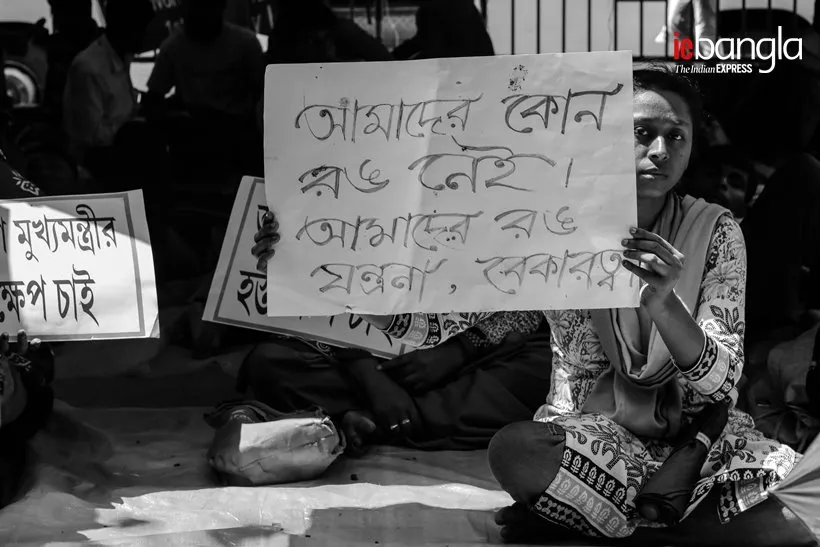 iebangla
The Indian EXPRESS
আমাদের কোন
রঙ নেই।
আমাদের রঙ
যন্ত্রনা, বেকারত্ব
মুখ্যমন্ত্রীর
ক্ষেপ চাই